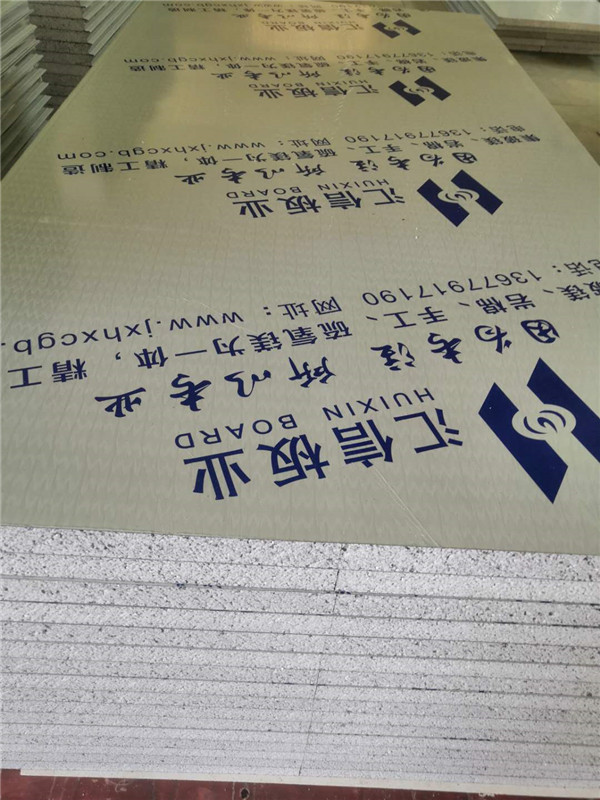 汇信板业
HUIXIN BOARD
因为专注 所以专业
玻镁、岩棉、手工、硫氧镁为一体，精工
电话：13677917190 网址：www.jxhxcgb.
汇信板业
HUIXIN BOARD
因为专注 所以专业
集玻镁、岩棉、手工、硫氧镁为一体，精工制造
电话：13677917190 网址：www.jxhxcgb.com
汇信板业
HUIXIN BOARD
因为专注 所以专业
集玻镁、岩棉、手工、硫氧镁为一体，精工制造
电话：13677917190 网址：www.jxhxcgb.com
因为专注 所以专业